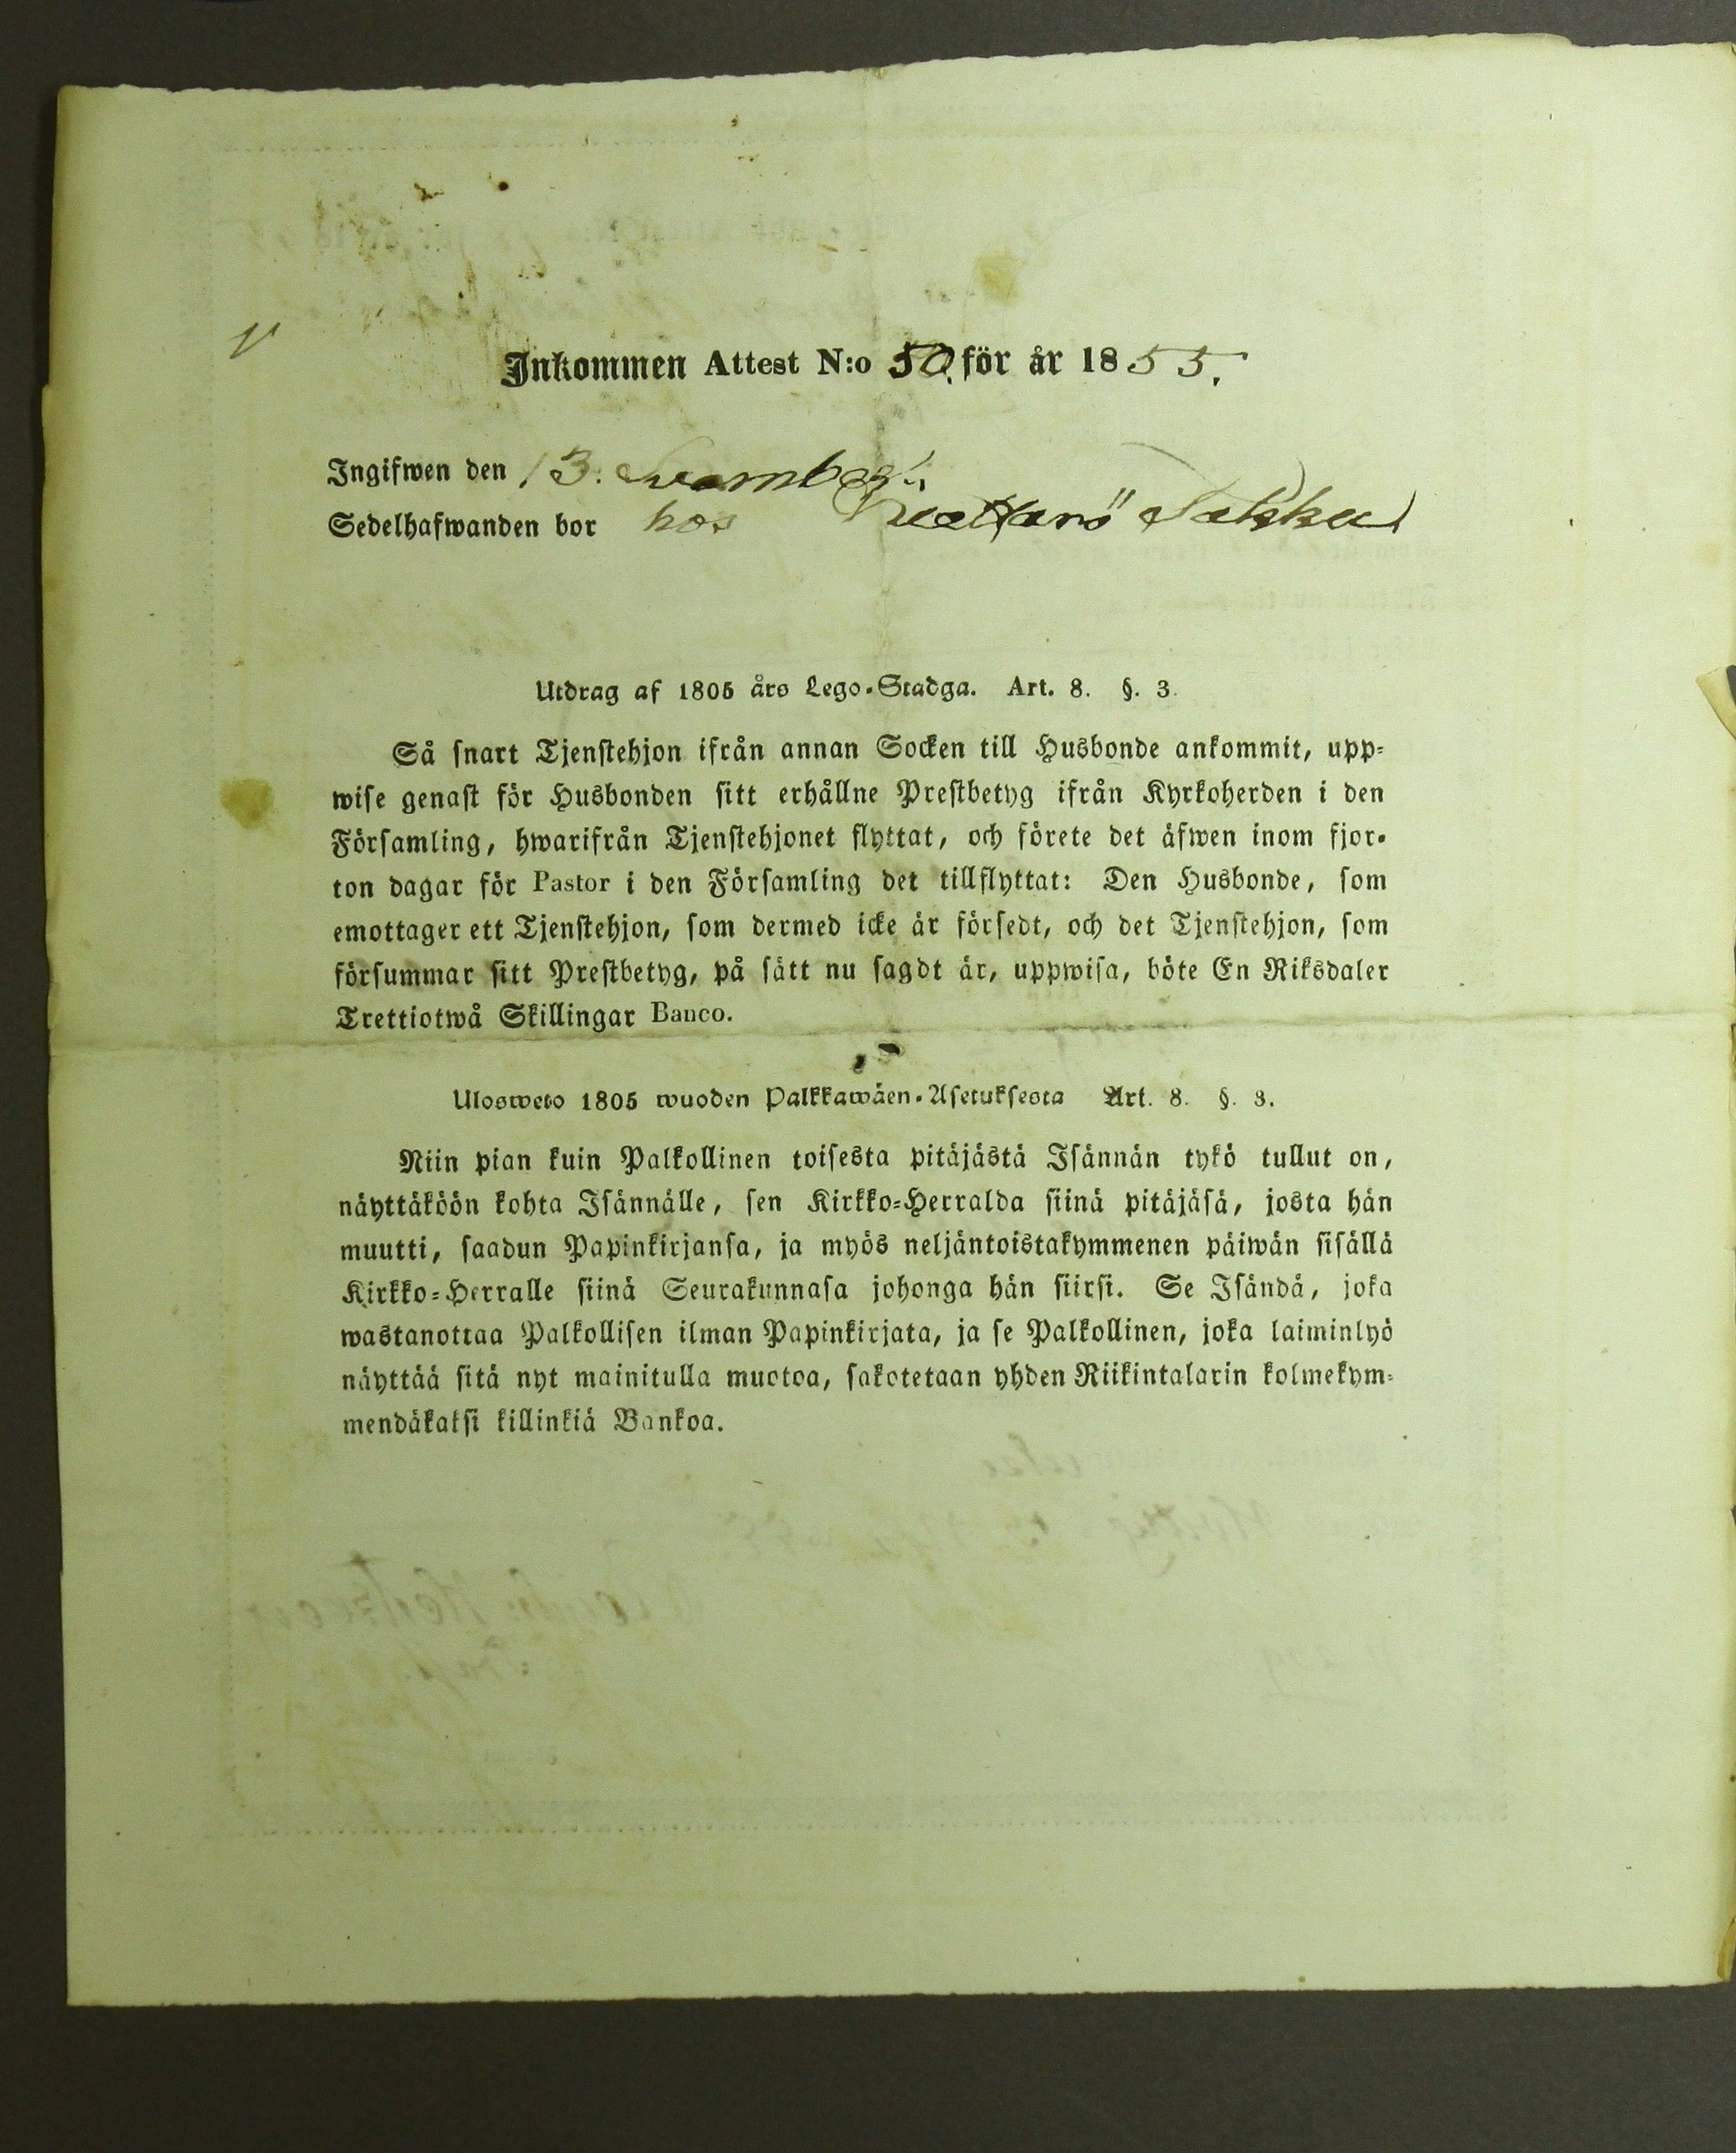 Inkommen Attest N:o 50. för år 1855.
Ingifwen den 13.
Sedelhafwanden bor hos
Utdrag af 1805 års Lego-Stadga. Art. 8. §. 3.
Så snart Tjenstehjon ifrån annan Socken till Husbonde ankommit, upp-
wise genast för Husbonden sitt erhållne Prestbetyg ifrån Kyrkoherden i den
Församling, hwarifrån Tjenstehjonet flyttat, och förete det äfwen inom fjor-
ton dagar för Pastor i den Församling det tillflyttat: Den Husbonde, som
emottager ett Tjenstehjon, som dermed icke är försedt, och det Tjenstehjon, som
försummar sitt Prestbetyg, på sätt nu sagdt är, uppwisa, böte En Riksdaler
Trettiotwå Skillingar Banco.
Ulosweto 1805 wuoden Palkkawäen-Asetuksesta Art. 8. §. 3.
Niin pian kuin Palkollinen toisesta pitäjästä Isännän tykö tullut on,
näyttäköön kohta Isännälle, sen Kirkko-Herralda siinä pitäjäsä, josta hän
muutti, saadun Papinkirjansa, ja myös neljäntoistakymmenen päiwän sisällä
Kirkko-Herralle siinä Seurakunnasa johonga hän siirsi. Se Isändä, joka
wastanottaa Palkollisen ilman Papinkirjata, ja se Palkollinen, joka laiminlyö
näyttää sitä nyt mainitulla muotoa, sakotetaan yhden Riikintalarin kolmekym-
mendäkaksi killinkiä Bankoa.